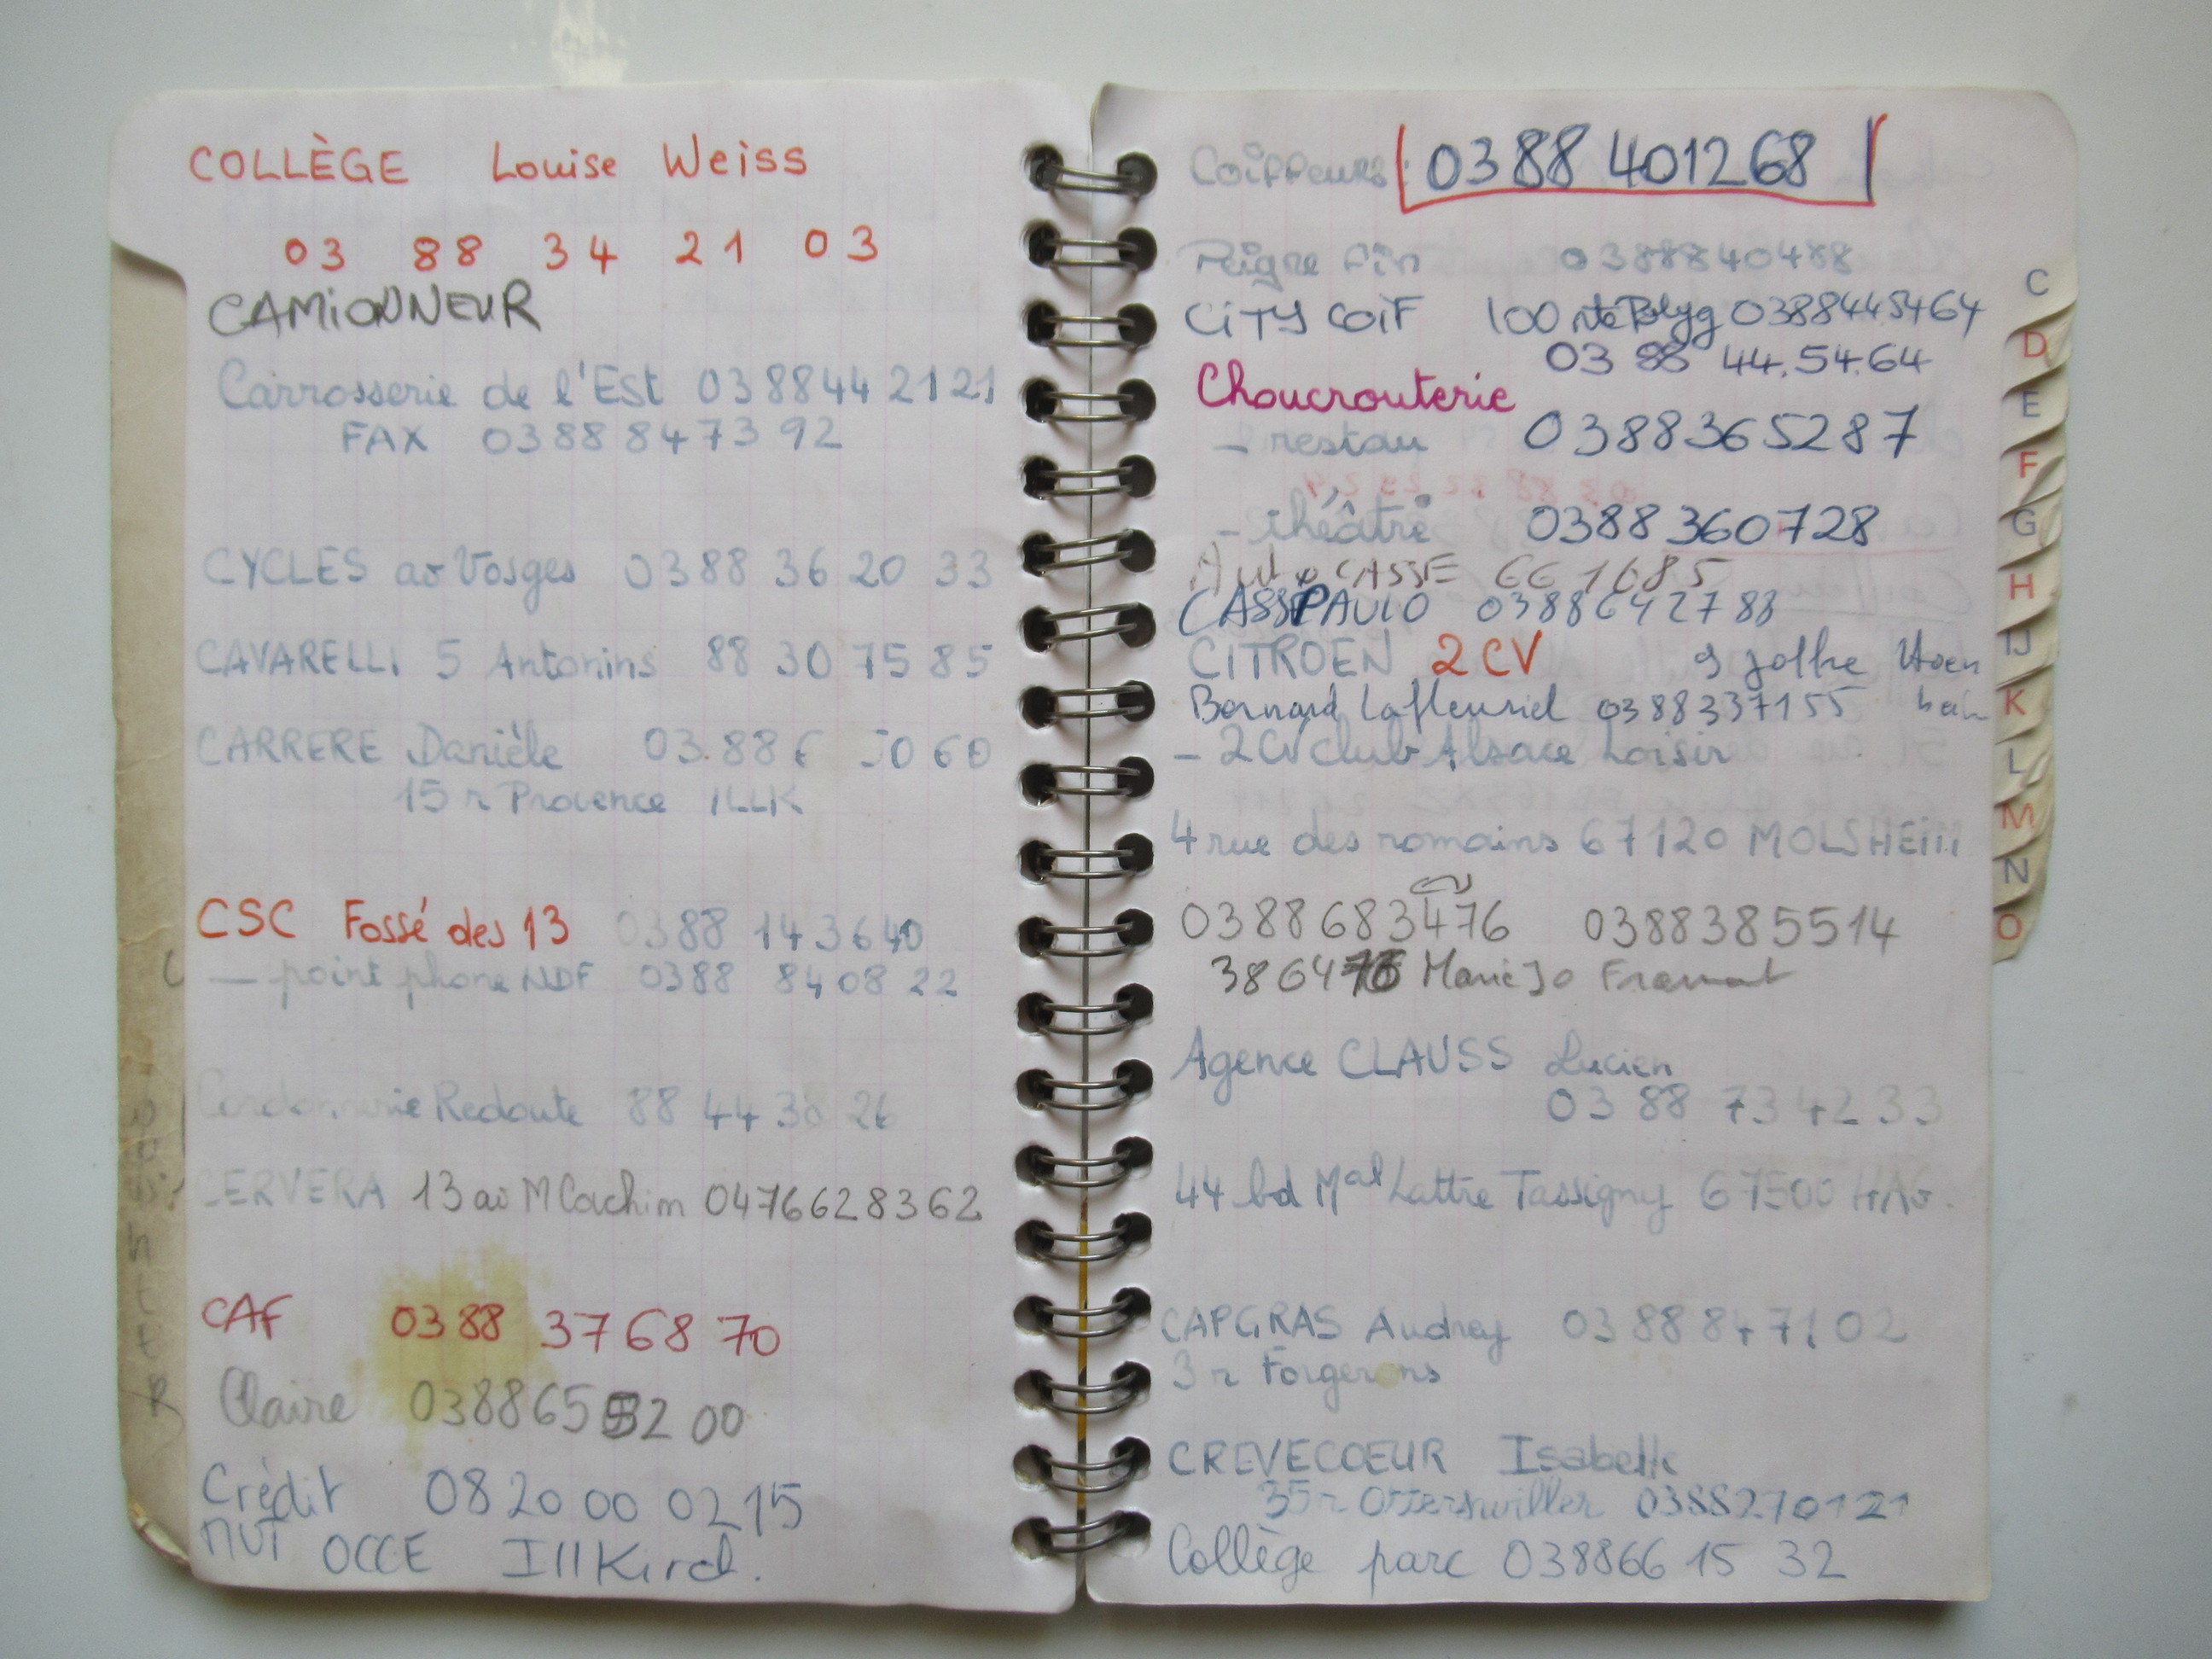 COLLÈGE Louise Weiss
03 88 34 21 03
CAMIONNEUR
Carrosserie de l'Est 0388442121
FAX 0388847392
CYCLES av Vosges 0388 36 20 33
CAVARELLI 5 Antonins 88 30 75 85
CARRERE Danièle 03.886 5060
15 r Provence ILLK
CSC Fossé des 13 0388 143640
— point phone NDF 0388 840822
Cordonnerie Redoute 88 44 30 26
CERVERA 13 av M Cachim 0476628362
CAF 0388 376870
Claire 0388655200
Crédit 0820 00 0215
MUT OCCE IllKirch.
Coiffeurs: 0388 401268
Peigne fin 0388840488
CITY COIF 100 rte Polyg 0388445464
03 88 44.54.64
Choucrouterie
- restau 0388365287
- théâtre 0388360728
Auto CASSE 661685
CASSPAULO 0388642788
CITROEN 2CV 9 joffre Hoen
Bernard Lafleuriel 0388337155 heim
- 2CV club Alsace Loisir
4 rue des romains 67120 MOLSHEIM
0388683476 0388385514
386476 Marie Jo
Agence CLAUSS Lucien
03 88 734233
44 bd Mal Lattre Tassigny 67500 HAG.
CAPGRAS Audrey 0388847102
3 r Forgerons
CREVECOEUR Isabelle
35 r Otterswiller 0388270121
Collège parc 038866 15 32
C
D
E
F
G
H
IJ
K
L
M
N
O